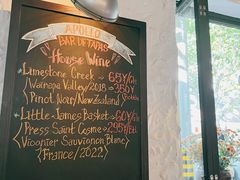 APOLLO
BAR DE TAPAS
House Wine
Limestone Creek → 65Y/Gls
Wairapa Valley/2018 → 350Y
Pinot Noir/New Zealand Bottle
Little James Basket → 60Y/Gls
Press Saint Cosme → 295Y/Btl
Viognier Sauvignon Blanc
France/2022